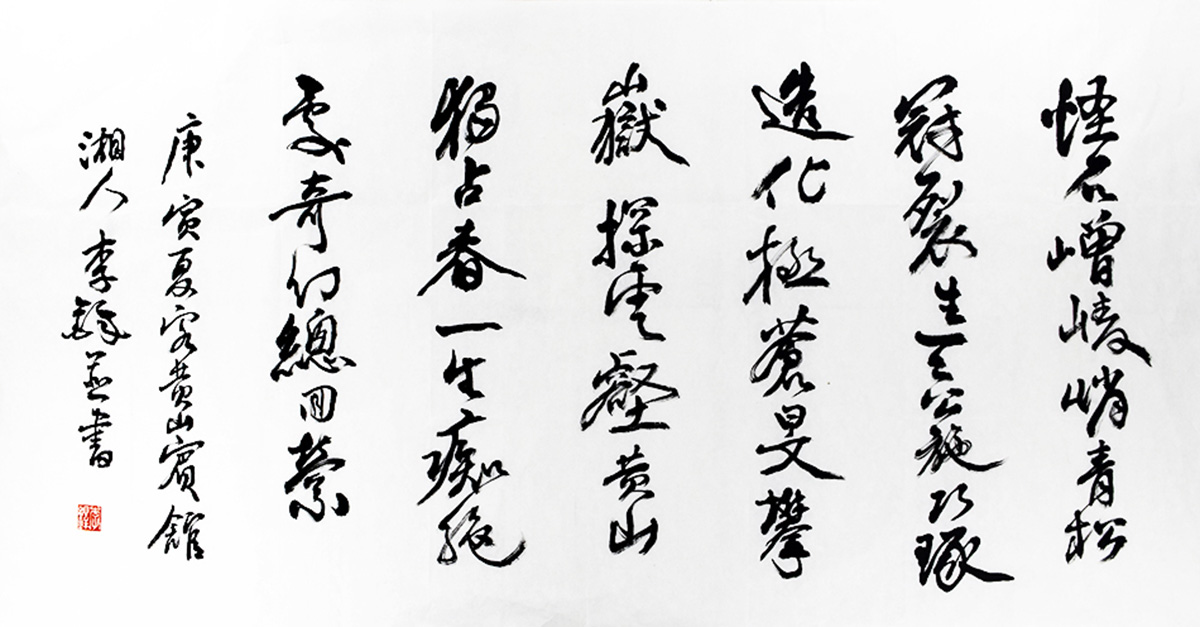 怪石嶒崚峭青松
冠裂生天公施巧琢
造化極蒼旻攀
嶽探雲壑黄山
獨占春一生痴絶
處奇幻總回縈
庚寅夏客黄山賓館
湘人李鐸並書